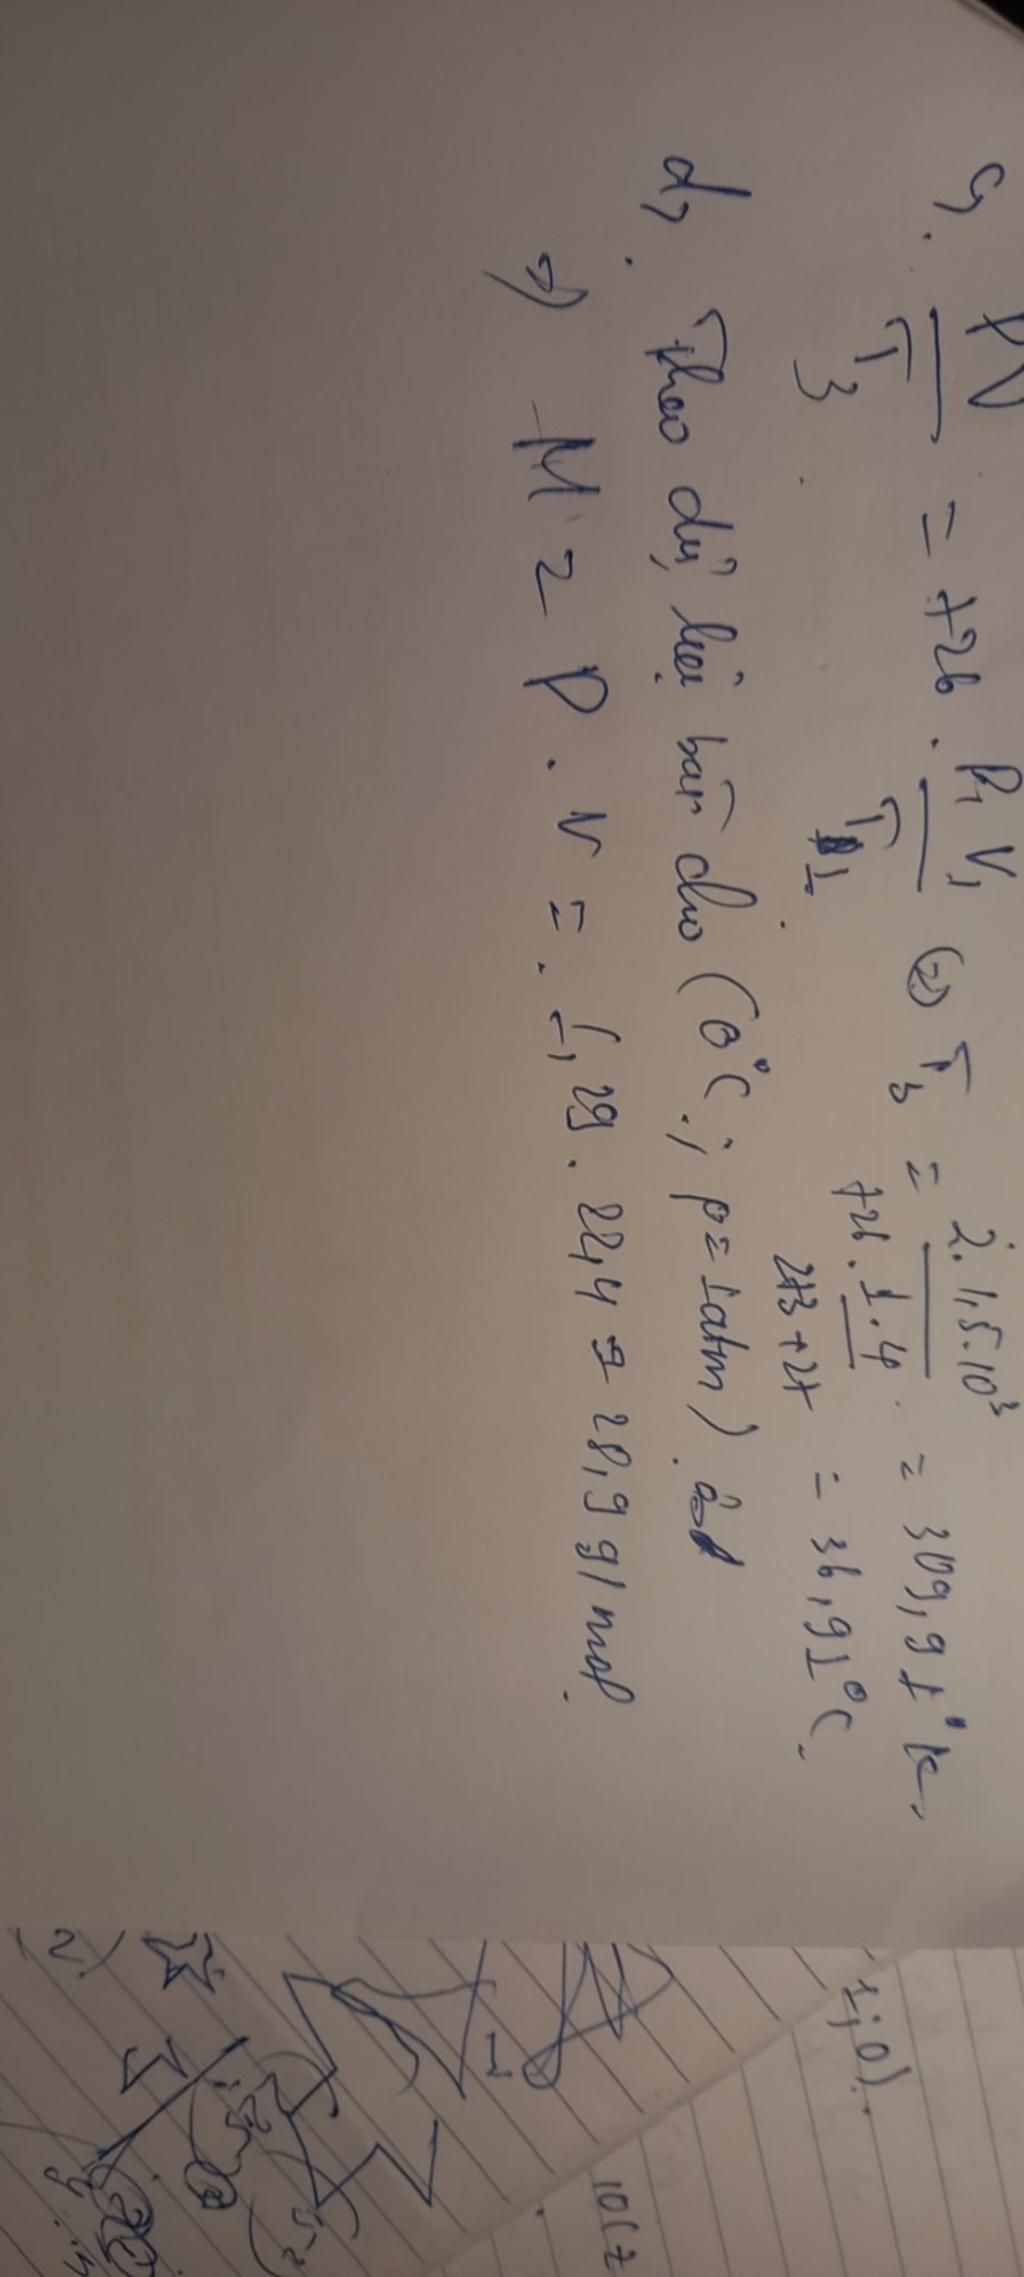 c, PV/T3 = 726 . P1 V1/T1 (=) T3 = 2.1,5.10³/(726 . 1.4/(273+27)) = 309,91°K,
= 36,91°C.
d, Theo dữ kiện bài cho (0°C ; p=1atm)
=) M = D . V = 1,29 . 22,4 = 28,9 g/mol.
1;0)
2)